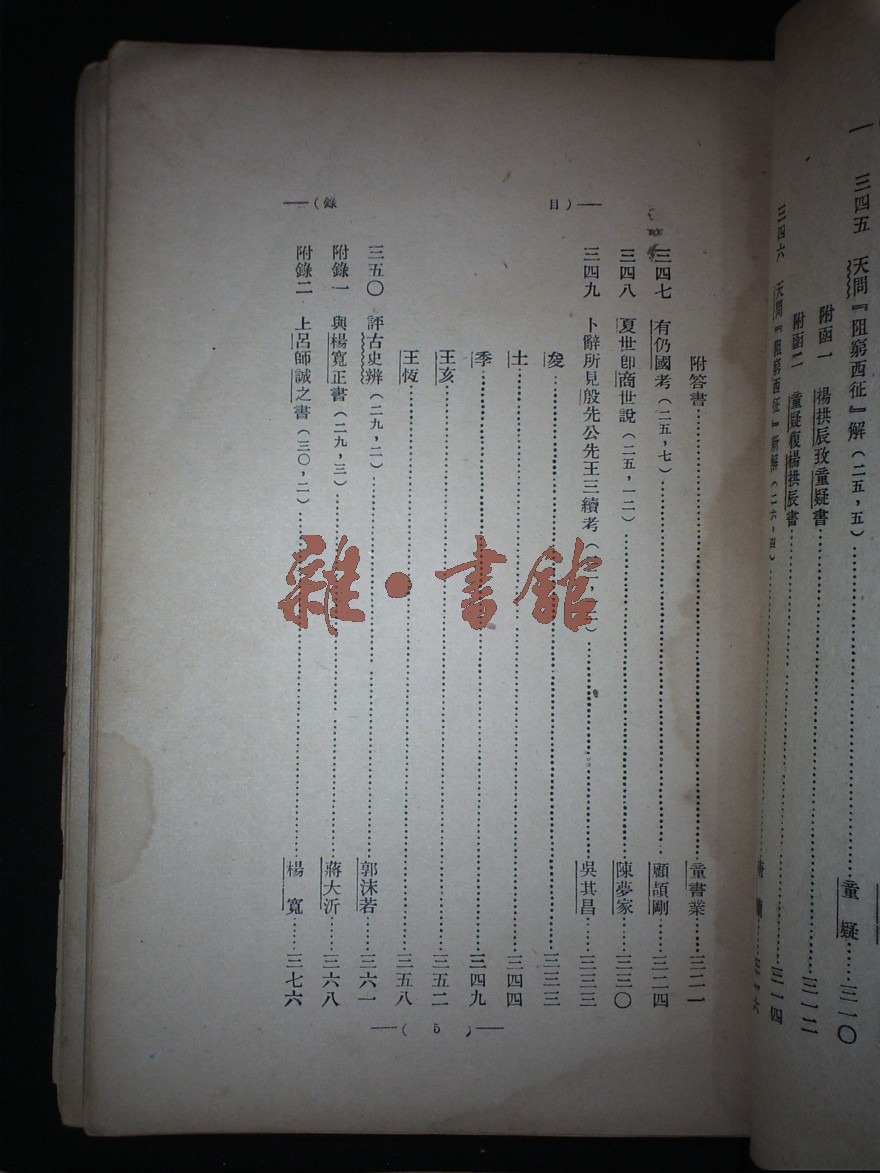 一
三四五 天問『阻窮西征』解(二五，五)……童疑……三一〇
附函一 楊拱辰致童疑書……三一二
附函二 童疑復楊拱辰書……三一四
三四六 天問『阻窮西征』新解(二六，四)……三一六
目
錄
附答書……童書業……三二一
三四七 有仍國考(二五，七)……顧頡剛……三二四
三四八 夏世卽商世說(二五，一二)……陳夢家……三三〇
三四九 卜辭所見殷先公先王三續考……吳其昌……三三三
夋……三三三
土……三四四
季……三四九
王亥……三五二
王恆……三五八
三五〇 評古史辨(二九，二)……郭沫若……三六一
附錄一 與楊寬正書(二九，三)……蔣大沂……三六八
附錄二 上呂師誠之書(三〇，二)……楊寬……三七六
(5)
雜·書館